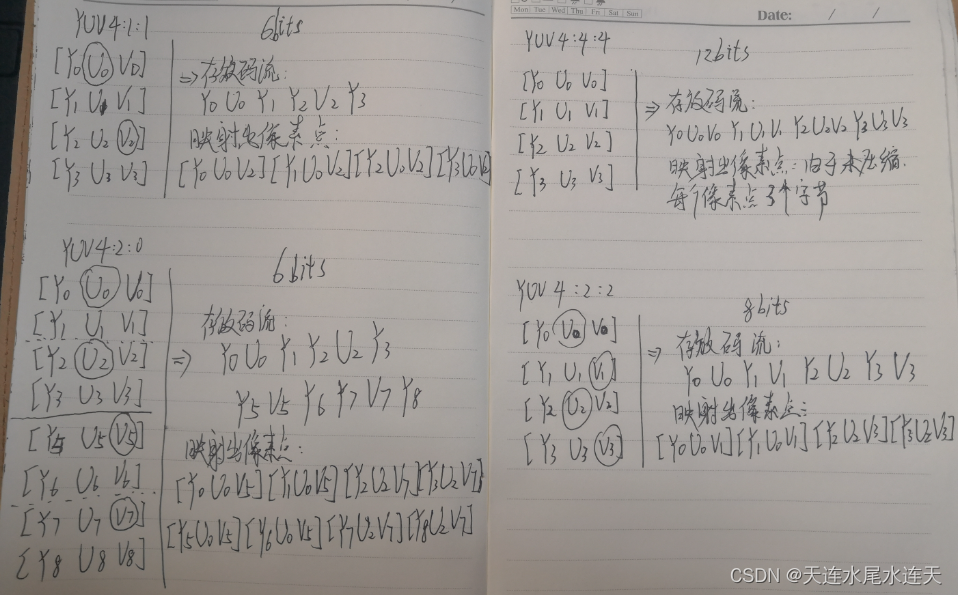 YUV 4:1:1
6bits
[Y0 U0 V0]
[Y1 U1 V1]
[Y2 U2 V2]
[Y3 U3 V3]
⇒存放码流:
Y0 U0 Y1 Y2 V2 Y3
映射出像素点:
[Y0 U0 V2] [Y1 U0 V2] [Y2 U0 V2] [Y3 U0 V2]
YUV 4:2:0
6bits
[Y0 U0 V0]
[Y1 U1 V1]
[Y2 U2 V2]
[Y3 U3 V3]
[Y5 U5 V5]
[Y6 U6 V6]
[Y7 U7 V7]
[Y8 U8 V8]
存放码流:
⇒ Y0 U0 Y1 Y2 U2 Y3
Y5 V5 Y6 Y7 V7 Y8
映射出像素点:
[Y0 U0 V5] [Y1 U0 V5] [Y2 U2 V7] [Y3 U2 V7]
[Y5 U0 V5] [Y6 U0 V5] [Y7 U2 V7] [Y8 U2 V7]
Mon. Tue. Wed. Thu. Fri. Sat. Sun.
Date: / /
YUV 4:4:4
12bits
[Y0 U0 V0]
[Y1 U1 V1]
[Y2 U2 V2]
[Y3 U3 V3]
⇒ 存放码流:
Y0 U0 V0 Y1 U1 V1 Y2 U2 V2 Y3 U3 V3
映射出像素点:由于未压缩.
每个像素点3个字节
YUV 4:2:2
8bits
[Y0 U0 V0]
[Y1 U1 V1]
[Y2 U2 V2]
[Y3 U3 V3]
⇒ 存放码流:
Y0 U0 Y1 V1 Y2 U2 Y3 V3
映射出像素点:
[Y0 U0 V1] [Y1 U0 V1] [Y2 U2 V3] [Y3 U2 V3]
CSDN @天连水尾水连天